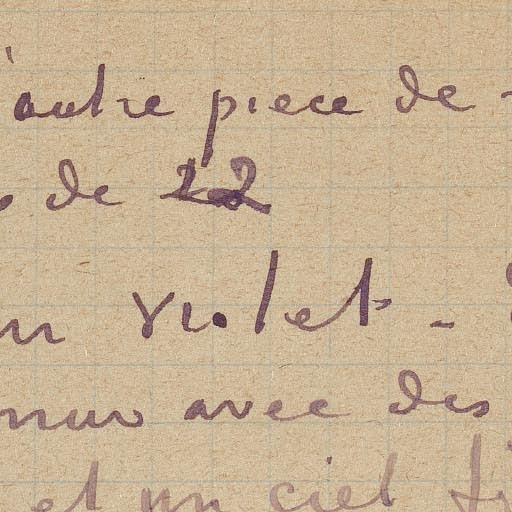 'autre piece de
de 22
un violet -
avec des
et un ciel